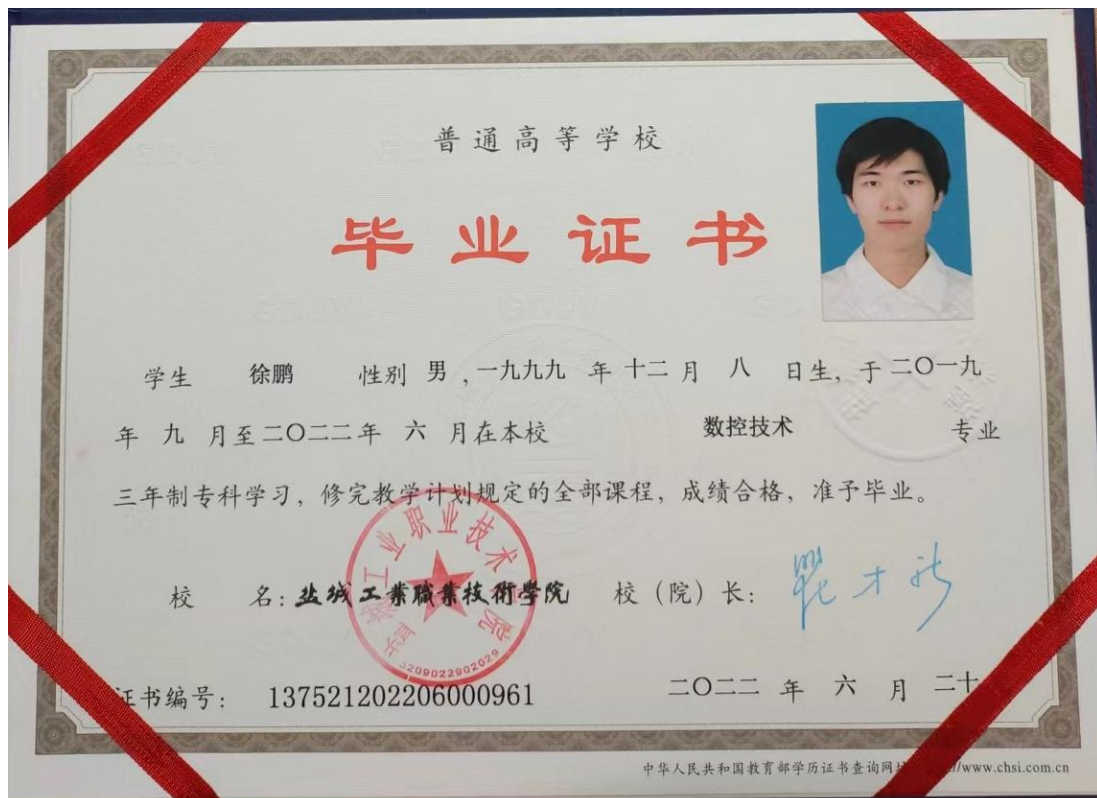 普通高等学校
毕业证书
学生 徐鹏 性别 男 ,一九九九 年 十二 月 八 日生, 于 二〇一九
年 九 月至 二〇二二 年 六 月在本校 数控技术 专业
三年制专科学习, 修完教学计划规定的全部课程, 成绩合格, 准予毕业。
校 名: 盐城工業職業技術學院 校（院）长: 瞿才新
盐城工业职业技术学院
3209022902029
证书编号: 137521202206000961 二〇二二 年 六 月 二十
中华人民共和国教育部学历证书查询网址 /www.chsi.com.cn